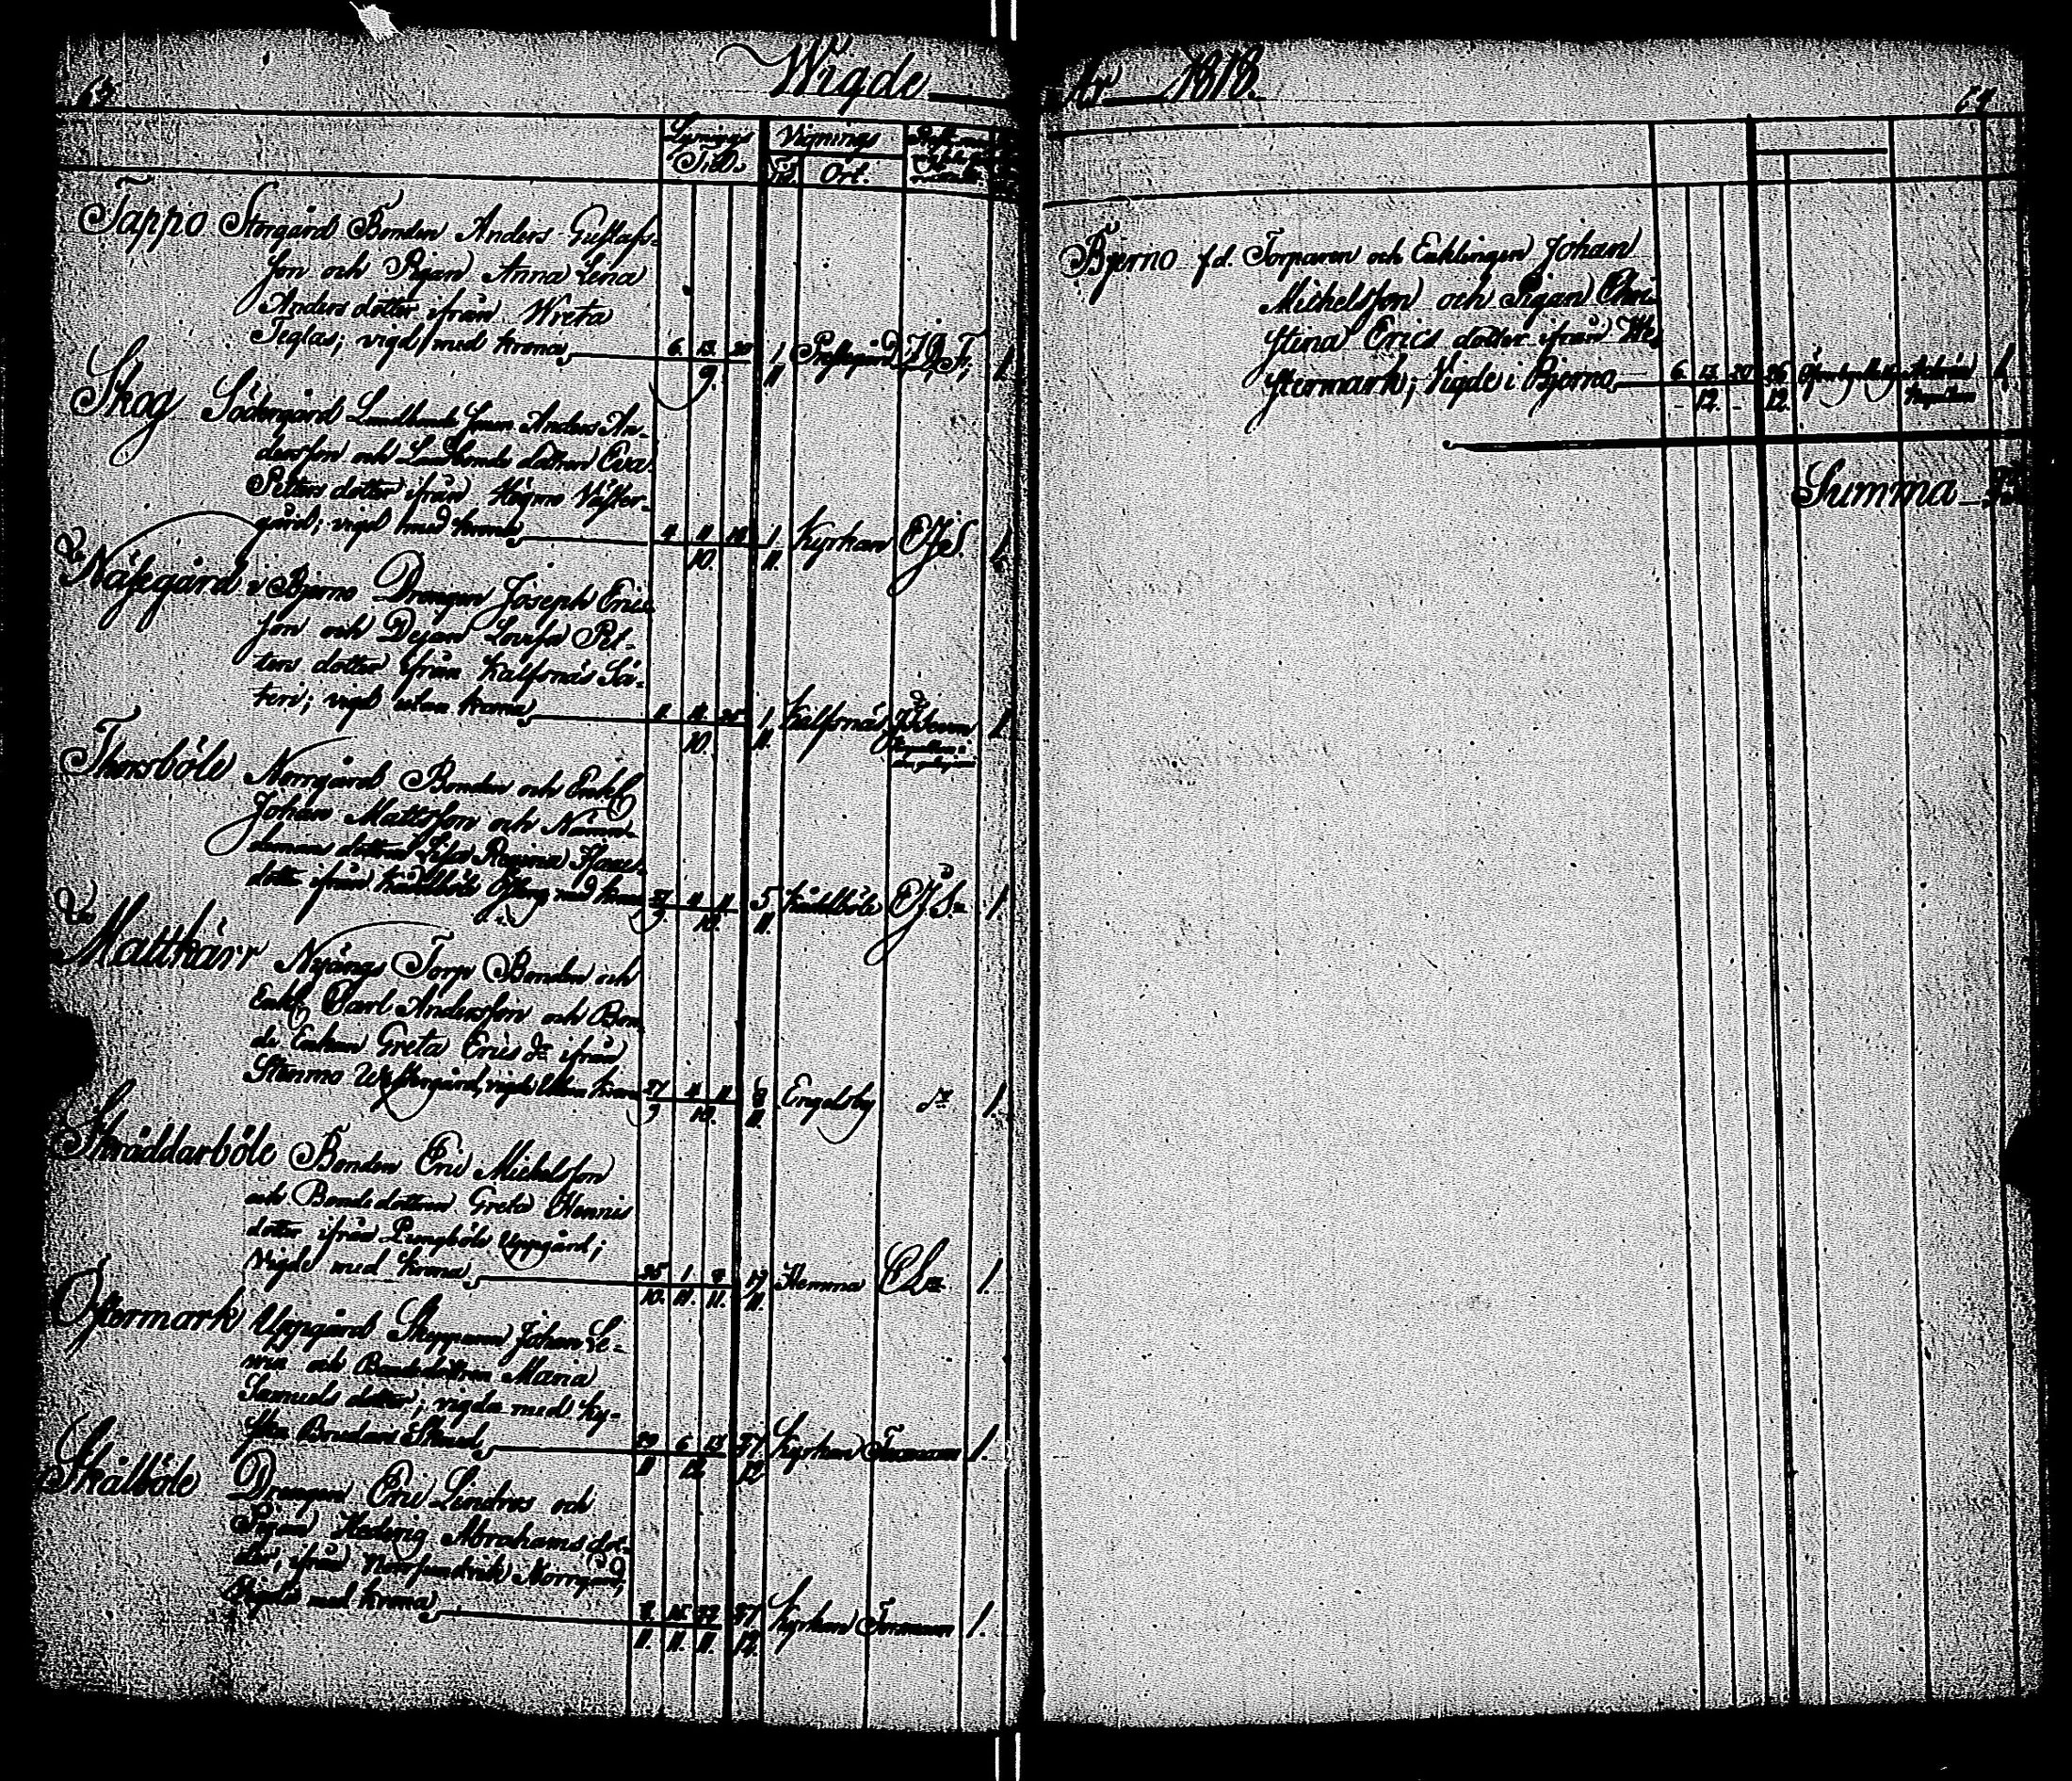 Wigde År 1818.
63
Lysnings Tid.
Vignings
Tid. Ort.
Tappo Storgård Bonden Anders Gustafs-
son och Pigan Anna Lena
Anders dotter ifrån Wreta
Teglas; vigd med Krona 6. 13. 20 1 Prästegård 1
9. 11
Skog Södergård Landbonde sonen Anders An-
dersson och Landbonde dottren Eva
Petters dotter ifrån Högmo Väster-
gård; vigd med Krona 4 11 18 1 Kyrkan 1
10. 11.
Näsegård i Bjerno Drengen Joseph Erics
son och Dejan Lovisa Pet-
ters dotter ifrån Kalfsnäs Sä-
teri; vigd utan Krona 11. 25 1 Kalfsnäs 1
10. 11.
Thorsböle Norrgård Bonden och Enkl.
Johan Mattsson och Nämn-
demans dottren Lisa Regina Hans
dotter ifrån med Krona 27 11 5 1
9. 10. 11.
Mattkärr Nyängs Torp Bonden och
Enkl. Carl Andersson och Bon-
de Enkan Greta Erics dr ifrån
Stenmo Westergård, vigde utan Krona 27 4 11 8 Engelsby dr 1.
9 10. 11.
Skräddarböle Bonden Eric Michelsson
och Bondedottren Greta Hennis
dotter ifrån Pungböle Uppgård;
Vigde med Krona 25 1 17 Hemma 1.
10. 11. 11. 11.
Östermark Uppgård Skepparen Johan Le-
och Bondedottren Maria
Samuels dotter; vigda med Ky-
29 6 13 27 Kyrkan 1.
11 12 12
Skålböle Drengen Eric Lindros och
Pigan Hedvig Abrahams dot-
ter, ifrån Norrsundvik Norrgård;
Vigde med Krona 8. 15 22 27 Kyrkan Forsman 1.
11. 11. 11. 12.
64
Bjerno f.d. Torparen och Enklingen Johan
Michelsson och Pigan Chri-
stina Erics dotter ifrån We-
stermark; Vigde i Bjerno 6. 13 20 26 1.
12. 12.
Summa